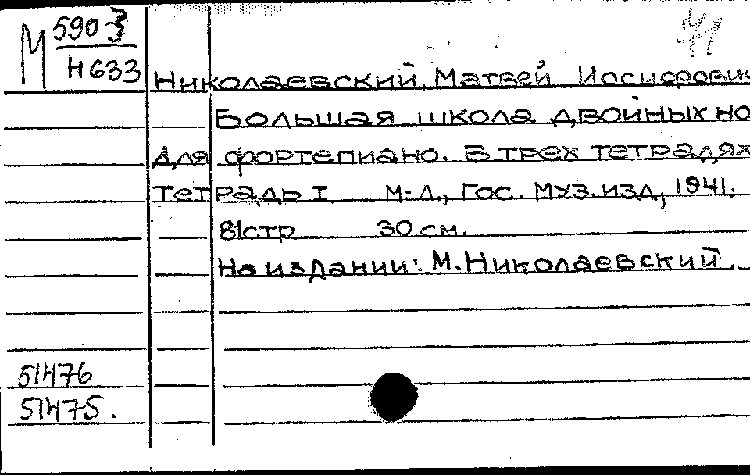 М 590 3
Н 633
41
Николаевский, Матвей Иосифович
Большая школа двойных но
для фортепиано. В трех тетрадях
Тетрадь I М-Л., Гос. Муз.изд, 1941.
81стр 30 см.
На издании: М.Николаевский.
51476
51475.